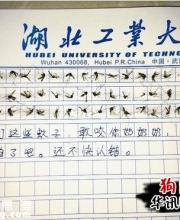 湖北工业大
HUBEI UNIVERSITY OF TECHNO
Wuhan 430068, Hubei P.R.China 中国·武
们这些蚊子，敢咬你奶奶，
了吧。还不快认错。
狗
华讯